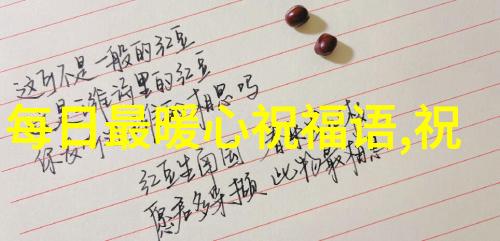 这可不是一般的红豆
是 维诗里的红豆
每日最暖心祝福语,祝
相思吗
红豆生南国 春来
愿君多采撷 此物最相思